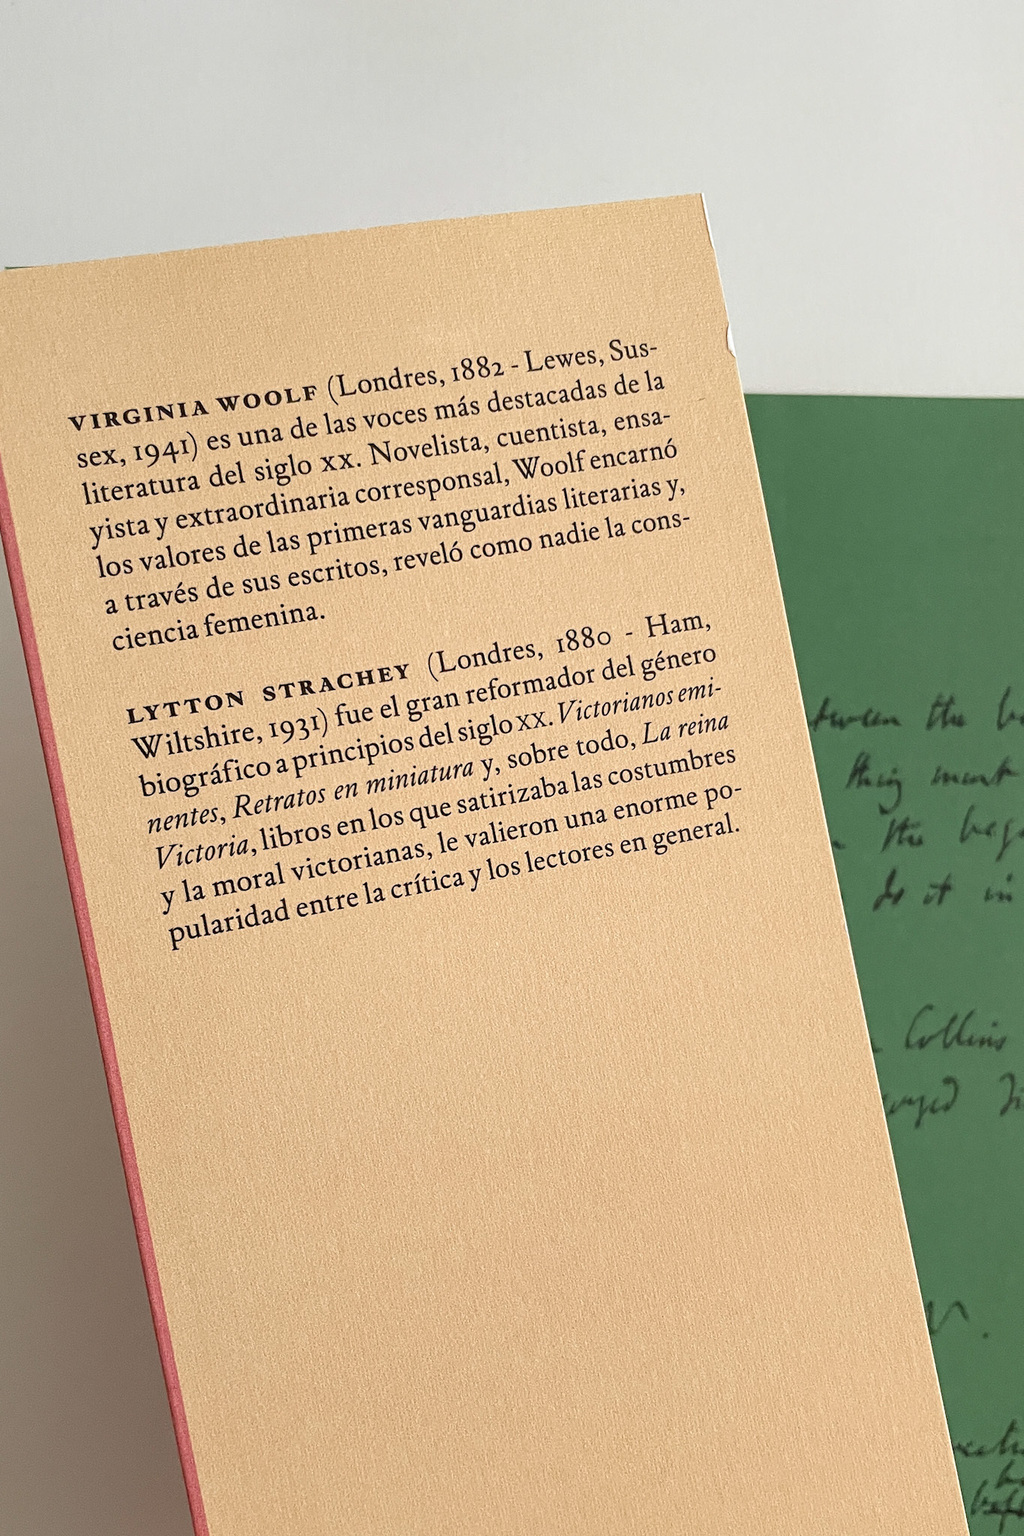 VIRGINIA WOOLF (Londres, 1882 - Lewes, Sus-
sex, 1941) es una de las voces más destacadas de la
literatura del siglo XX. Novelista, cuentista, ensa-
yista y extraordinaria corresponsal, Woolf encarnó
los valores de las primeras vanguardias literarias y,
a través de sus escritos, reveló como nadie la cons-
ciencia femenina.
LYTTON STRACHEY (Londres, 1880 - Ham,
Wiltshire, 1931) fue el gran reformador del género
biográfico a principios del siglo XX. Victorianos emi-
nentes, Retratos en miniatura y, sobre todo, La reina
Victoria, libros en los que satirizaba las costumbres
y la moral victorianas, le valieron una enorme po-
pularidad entre la crítica y los lectores en general.
the
the
it in
Collins